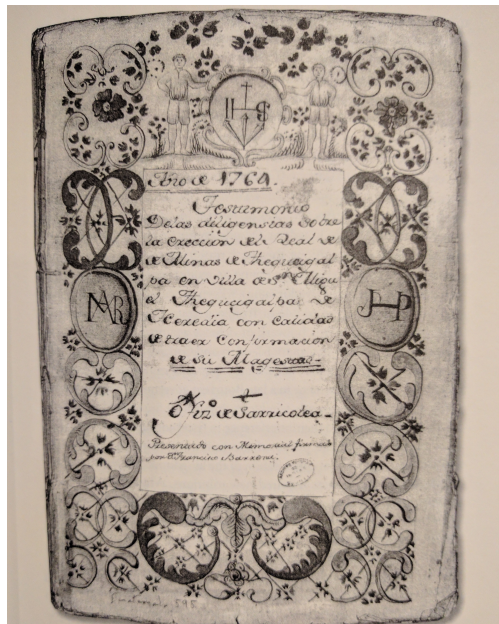 IHS
Año de 1764
Testimonio
De las diligensias Sobre
la ereccion del Real de
Minas de Thegucigal
pa en Villa de Sn. Migu
el Thegucigalpa, De
Heredia con calidad
de traer Confirmacion
de Su Magestad-
MAR
JHP
de Sarricolea-
Presentado con Memorial firmado
por Dn. Francisco Barrena.